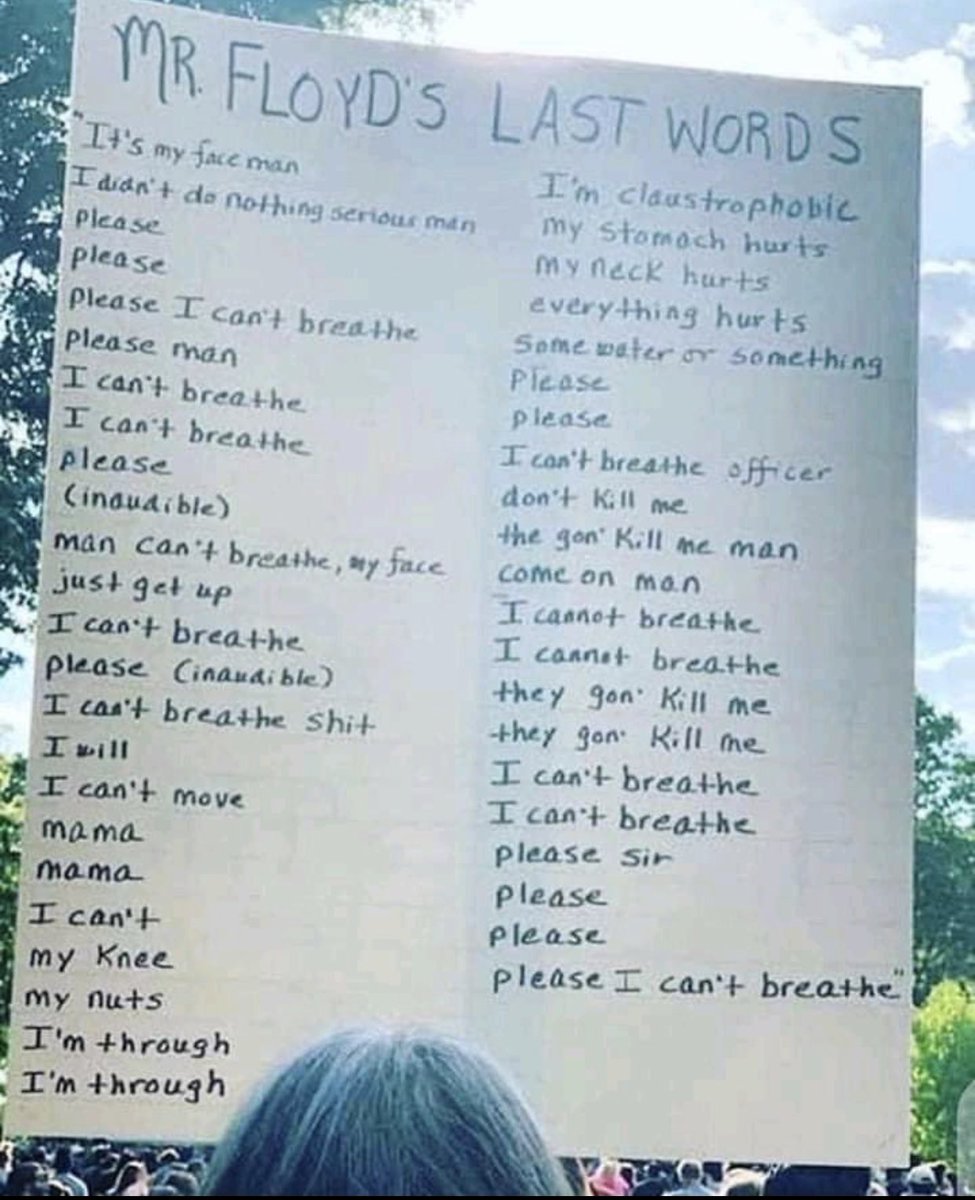 MR. FLOYD'S LAST WORDS
"It's my face man
I didn't do nothing serious man
please
please
please I can't breathe
please man
I can't breathe
I can't breathe
please
(inaudible)
man can't breathe, my face
just get up
I can't breathe
please (inaudible)
I can't breathe shit
I will
I can't move
mama
mama
I can't
my Knee
my nuts
I'm through
I'm through
I'm claustrophobic
my stomach hurts
my neck hurts
everything hurts
some water or something
Please
please
I can't breathe officer
don't Kill me
the gon' Kill me man
come on man
I cannot breathe
I cannot breathe
they gon' Kill me
they gon' Kill me
I can't breathe
I can't breathe
please sir
please
please
please I can't breathe"